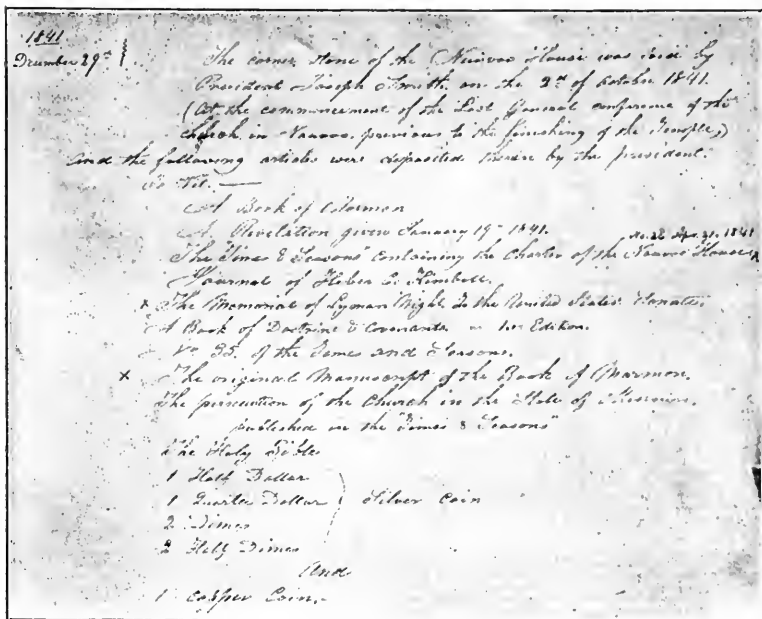 1841
December 29th
The corner stone of the Nauvoo House was laid by
President Joseph Smith on the 2d of October 1841.
(At the commencement of the Last General conference of the
church in Nauvoo previous to the finishing of the Temple,)
And the following articles were deposited therein by the president.
To Wit. —
A Book of Mormon
A Revelation given January 19th 1841.
No. 22 Apr. 21. 1841
The Times & Seasons Containing the Charter of the Nauvoo House
Journal of Heber C. Kimball.
x The Memorial of Lyman Wight to the United States Senate
A Book of Doctrine & Covenants 1st Edition.
No 35. of the Times and Seasons.
x The original Manuscript of the Book of Mormon.
The persecution of the Church in the State of Missouri.
published in the "Times & Seasons"
The Holy Bible
1 Half Dollar
1 Quarter Dollar Silver Coin
2 Dimes
2 Half Dimes
And
1 Copper Coin.